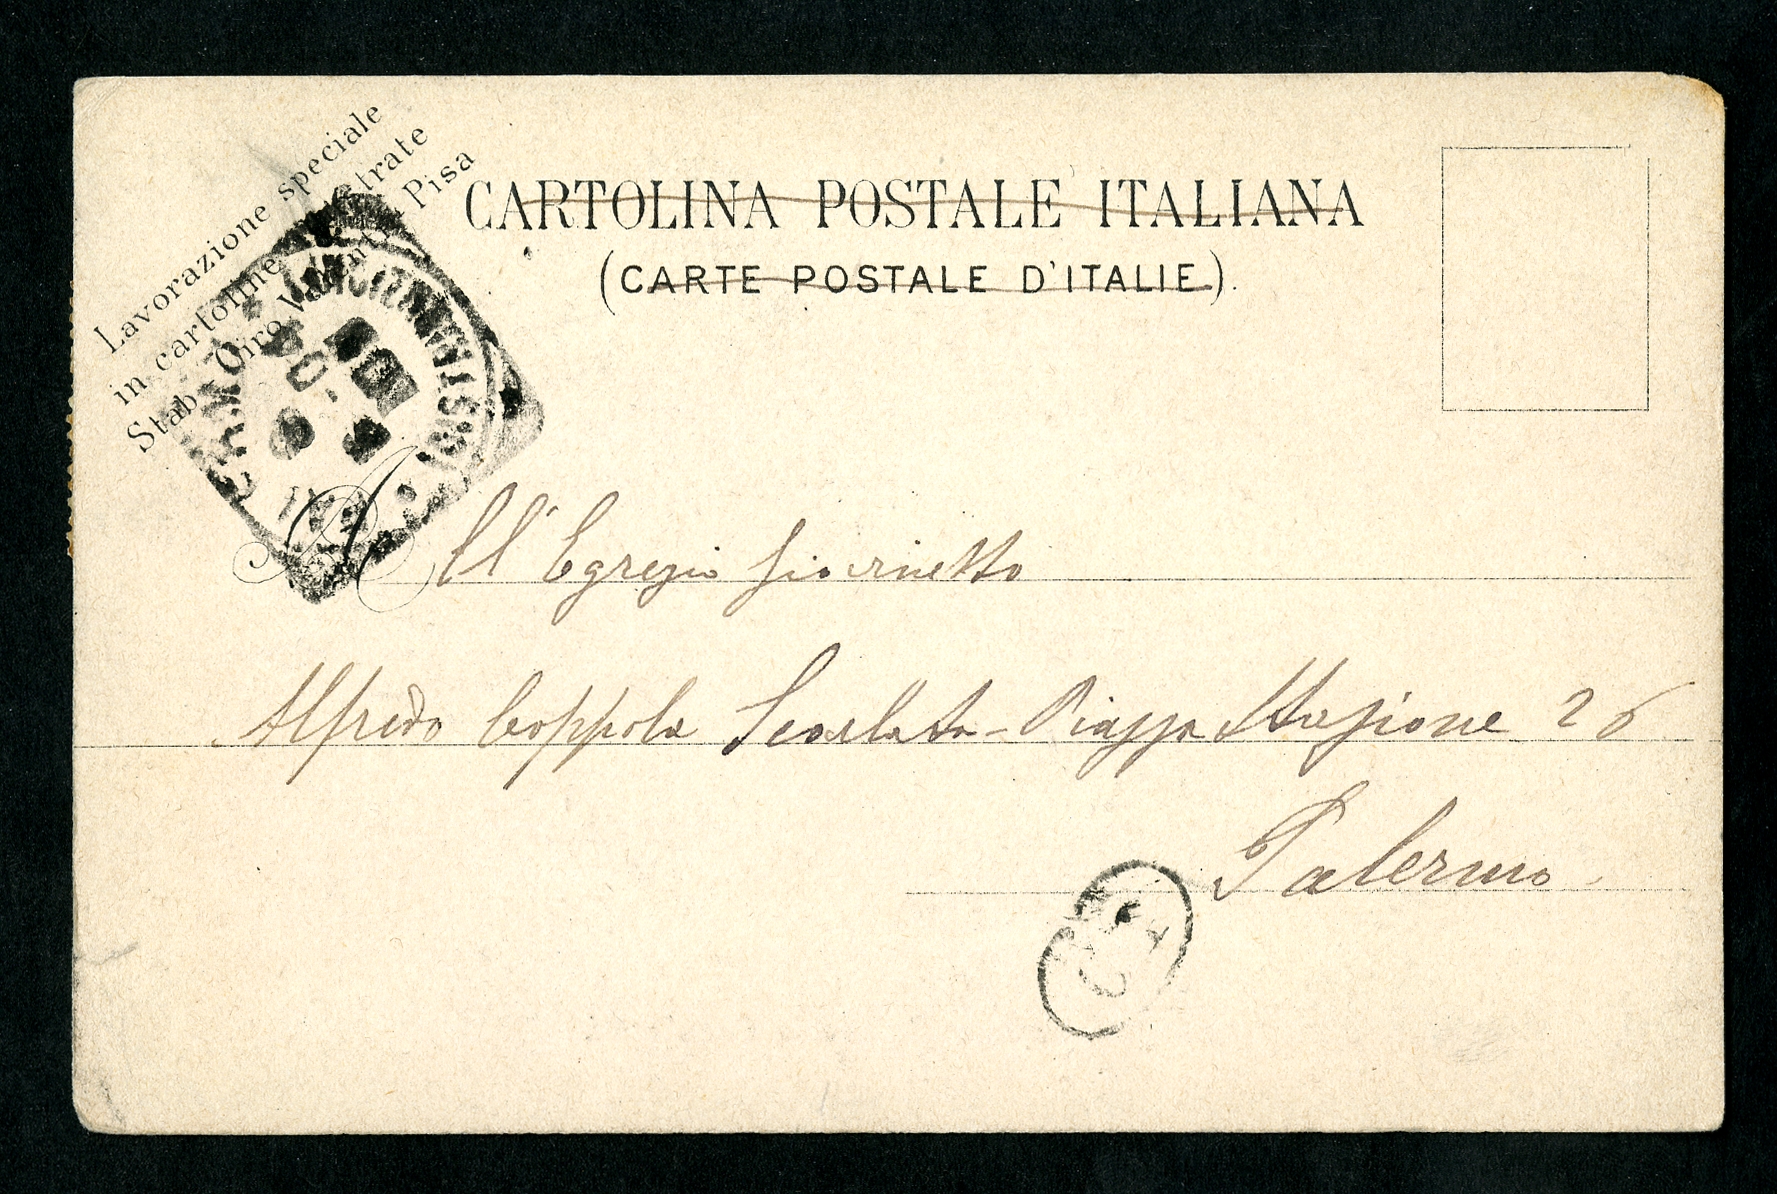 Lavorazione speciale
in cartoline
Stab. Ciro Valenti Pisa
CARTOLINA POSTALE ITALIANA
(CARTE POSTALE D'ITALIE.)
All'Egregio giovinetto
Alfredo Coppola Scarlata - Piazza Stazione 26
Palermo